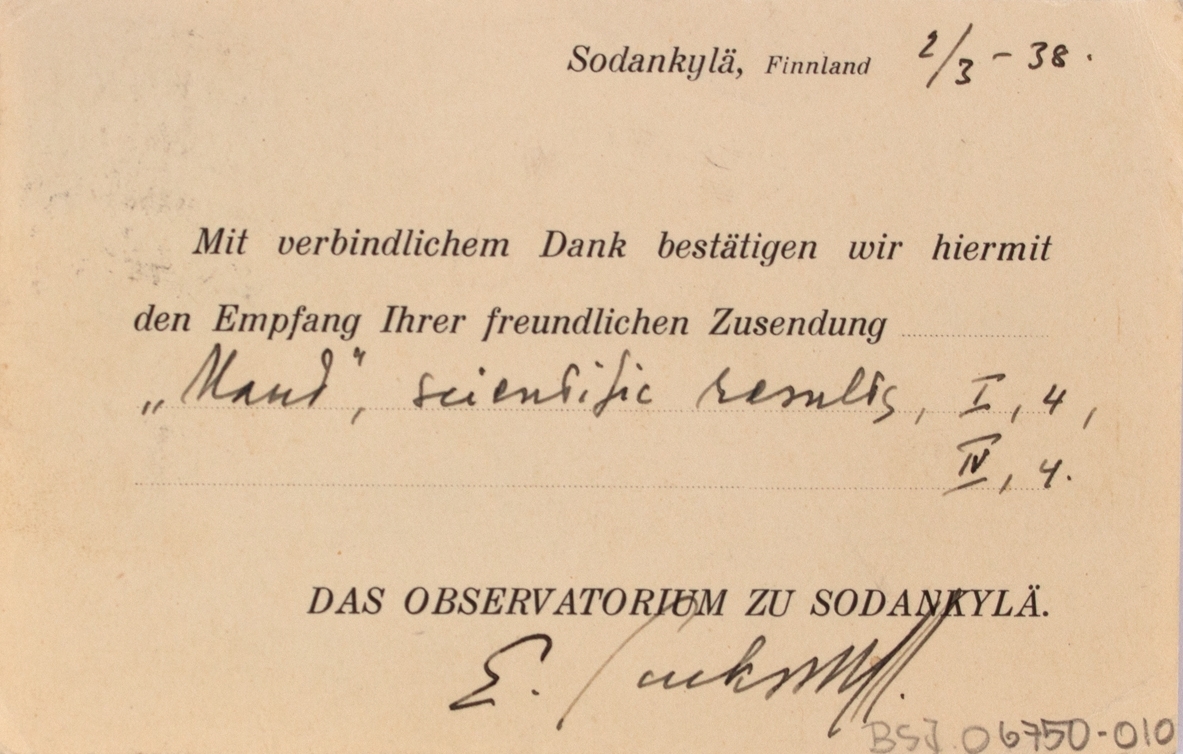 Sodankylä, Finnland 2/3 - 38.
Mit verbindlichem Dank bestätigen wir hiermit
den Empfang Ihrer freundlichen Zusendung
„Maud", scientific results, I, 4,
IV, 4.
DAS OBSERVATORIUM ZU SODANKYLÄ.
E.
BSJ 06750-010